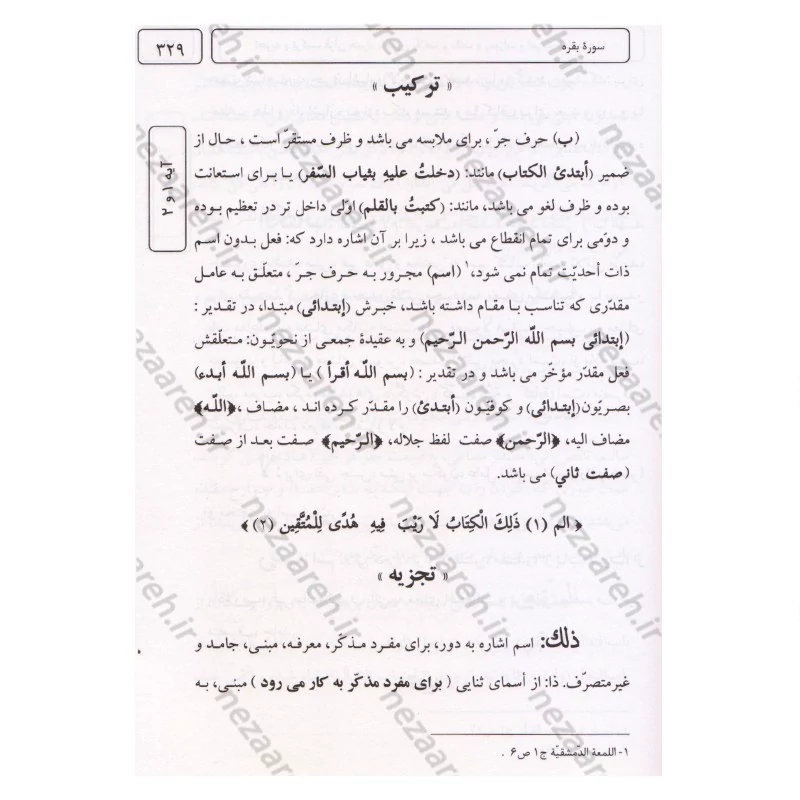 سورهٔ بقره
۳۲۹
« ترکیب »
آیه ۱ و ۲
(ب) حرف جرّ ، برای ملابسه می باشد و ظرف مستقرّ است ، حال از
ضمیر (أبتدئ الکتاب) مانند: (دخلتُ علیهِ بثیاب السّفر) یـا بـرای استعانت
بوده و ظرف لغو می باشد، مانند: (کتبتُ بالقلم) اوّلی داخل تر در تعظیم بوده
و دوّمی برای تمام انقطاع می باشد ، زیرا بر آن اشاره دارد که: فعل بدون اسم
ذات أحدیّت تمام نمی شود،۱ (اسم) مجرور به حرف جـرّ ، متعلّق به عامل
مقدّری که تناسب با مقام داشته باشد، خبرش (إبتدائی) مبتدا، در تقدیر :
(إبتدائی بسم اللّه الرّحمن الرّحیم) و به عقیدهٔ جمعی از نحویّون: متـعلّقش
فعل مقدّر مؤخّر می باشد و در تقدیر : (بسم اللّه أقرأ ) یـا (بسم اللّه أبدء)
بصریّون(إبتدائی) و کوفیّون (أبتدئ) را مقدّر کرده اند ، مضاف ،﴿اللّه﴾
مضاف الیه، ﴿الرّحمن﴾ صفت لفظ جلاله، ﴿الرّحیم﴾ صفت بعد از صفت
(صفت ثاني) می باشد.
﴿ الم (۱) ذَلِكَ الْكِتَابُ لَا رَيْبَ فِيهِ هُدًى لِلْمُتَّقِين (۲) ﴾
« تجزیه »
ذلك: اسم اشاره به دور، برای مفرد مذکّر، معرفه، مبنی، جامد و
غیرمتصرّف. ذا: از أسمای ثنایی ( برای مفرد مذکّر به کار می رود ) مبنی، بـه
۱- اللمعة الدّمشقیّة ج۱ ص۶ .
nezaareh.ir